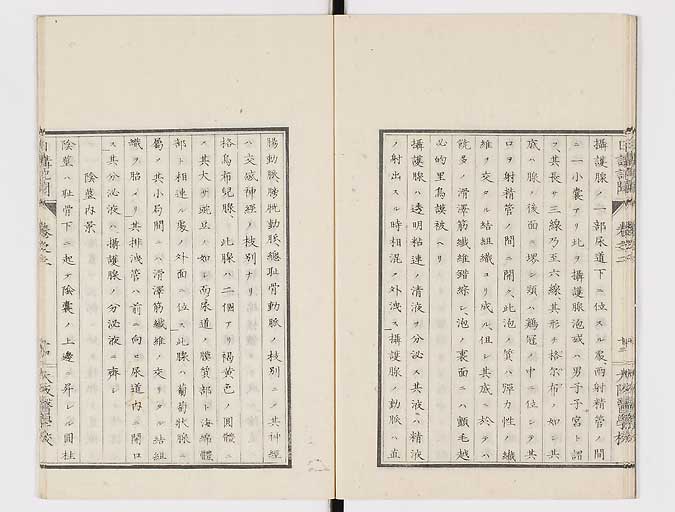 攝護腺ノ一部尿道下ニ位スル處、兩射精管ノ間
ニ一小囊アリ此ヲ攝護腺泡或ハ男子子宮ト謂
フ、其長サ三線乃至六線其形チ格尓布ノ如シ其
底ハ腺ノ後面ニ 頸ハ鷄冠ノ中ニ位シテ其
口ヲ射精管ノ間ニ開ク、此泡ノ質ハ彈力性ノ纖
維ヲ交タル結組織ヨリ成ル、但シ其底ニ於テハ
許多ノ滑澤筋纖維錯綜シ泡ノ裏面ニハ顫毛越
必的里烏謨被ヘリ
攝護腺ハ透明粘連ノ清液ヲ分泌ス其液ハ精液
ノ射出スル時相混ノ外洩ス攝護腺ノ動脈ハ直
腸動脈膀胱動脈總耻骨動脈ノ枝別ニノ其神經
ハ交感神經ノ枝別ナリ
格烏布兒腺、此腺ハ二個アリ褐黄色ノ圓體ニ
ノ其大サ豌豆ノ如シ而尿道ノ膜質部ト海綿體
部ト相連ル處ノ外面ニ位ス此腺ハ葡萄狀腺ニ
屬ノ其小局間ニハ滑澤筋纖維ノ交リタル結組
織ヲ貽メリ其排洩管ハ前ニ向ヒ尿道内ニ開口
ス其分泌液ハ攝護腺ノ分泌液ニ齊シ
陰莖内景
陰莖ハ耻骨下ニ起テ陰囊ノ上邊ニ昇レル圓柱